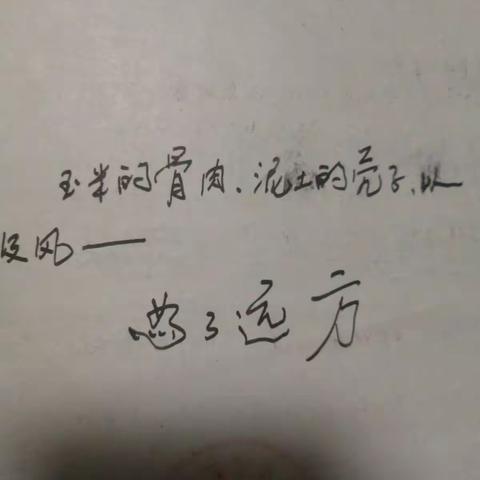 玉米的骨肉、泥土的壳子,以
及风——
了远方